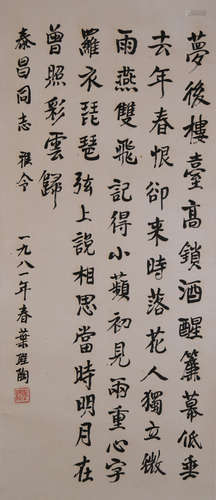 夢後樓臺高鎖酒醒簾幕低垂
去年春恨卻来時落花人獨立微
雨燕雙飛記得小蘋初見兩重心字
羅衣琵琶弦上說相思當時明月在
曾照彩雲歸
泰昌同志雅令
一九八一年春葉聖陶